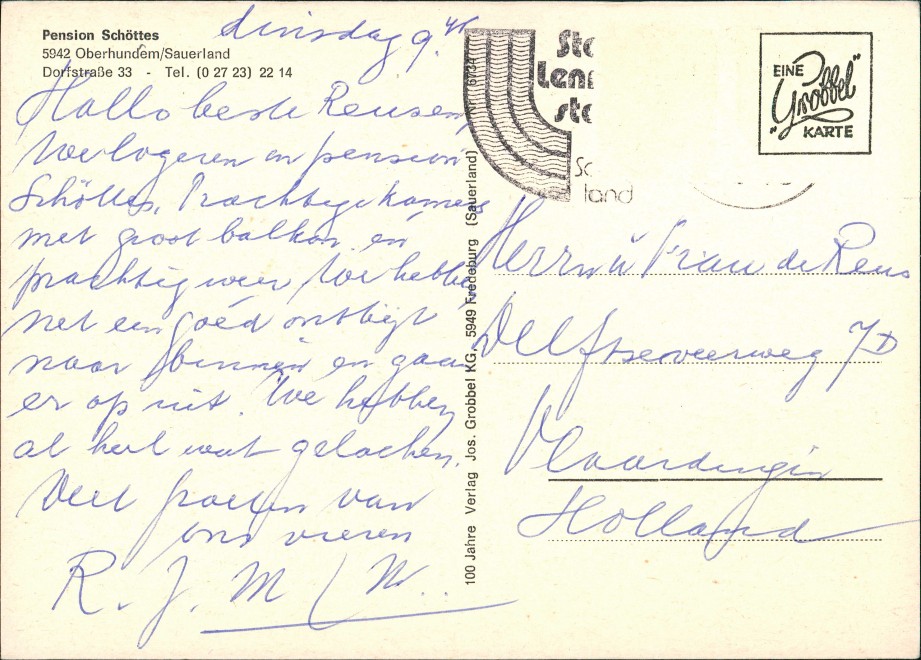 Pension Schöttes
5942 Oberhundem/Sauerland
Dorfstraße 33 - Tel. (0 27 23) 22 14
dinsdag 9.
Hallo beste Reusen,
We logeren in pension
Schöttes, Prachtige kamers
met groot balkon en
prachtig weer We hebben
net een goed ontbijt
naar binnen en gaan
er op uit. We hebben
al heel wat gelachen.
Veel groeten van
ons vieren
R. J. M W.
100 Jahre Verlag Jos. Grobbel KG, 5949 Fredeburg (Sauerland)
Nr. 6734
Sta
Lenn
sta
Sa
land
EINE
"Grobbel"
KARTE
Herrn u Frau de Reus
Delftseveerweg 7D
Vlaardingen
Holland